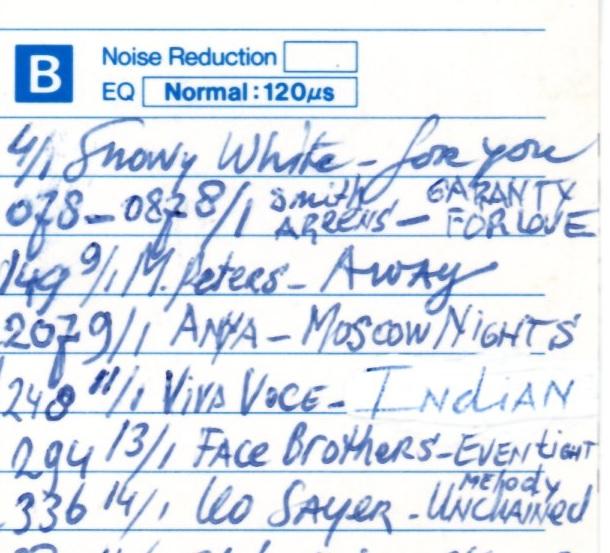 B Noise Reduction
EQ Normal:120µs
4/1 Snowy White - for you
078-087 8/1 Smith ARRENS - GARANTY FOR LOVE
149 9/1 M. Peters - AWAY
207 9/1 ANYA - MOSCOW NIGHTS
248 11/1 VIVA VOCE - INdiAN
294 13/1 FACE BROTHERS - EVEN tIGHT
336 14/1 LEO SAYER - UNCHAINED MELODY